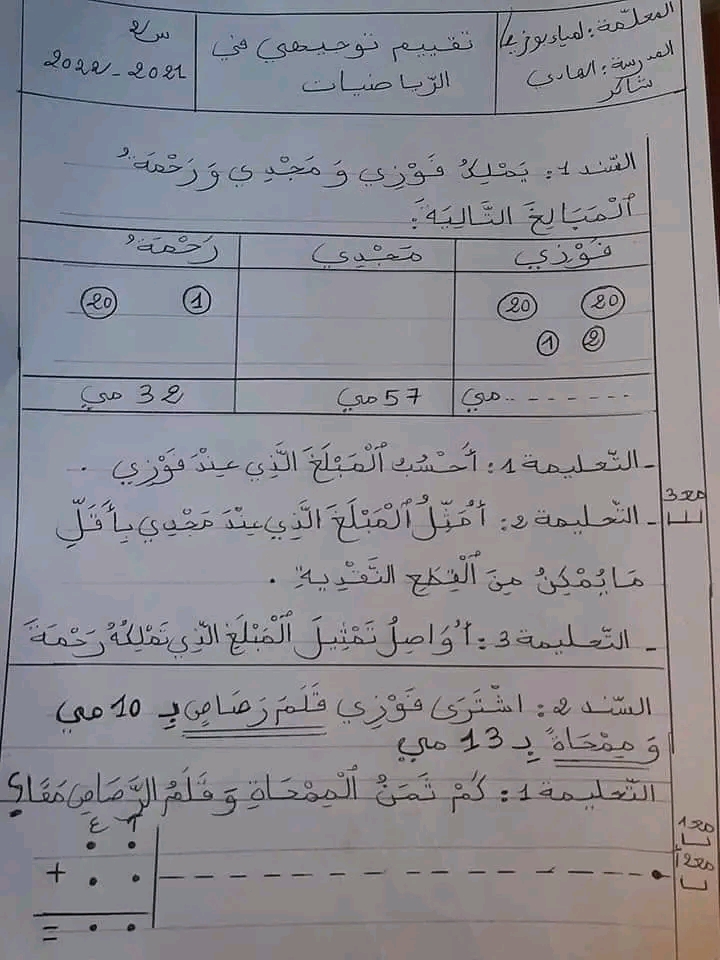 المعلّمة: لمياء بوزيد
المدرسة: الهادي شاكر
تقييم توجيهي في
الرّياضيات
س2
2021-2022
السّند 1: يَمْلِكُ فَوْزِي وَ مَجْدِي وَ رَحْمَةُ
اَلْمَبَالِغَ التَّالِيَةَ:
فَوْزِي مَجْدِي رَحْمَةُ
20 20 20 1
2 1
........مي 57 مي 32 مي
- التّعليمة 1: أَحْسُبُ اَلْمَبْلَغَ الَّذِي عِنْدَ فَوْزِي .
مع3
- التّعليمة 2: أُمَثِّلُ اَلْمَبْلَغَ الَّذِي عِنْدَ مَجْدِي بِأَقَلِّ
مَا يُمْكِنُ مِنَ اَلْقِطَعِ النَّقْدِيةِ .
- التّعليمة 3: أُوَاصِلُ تَمْثِيلَ اَلْمَبْلَغِ الَّذِي تَمْلِكُهُ رَحْمَةُ
السّند 2: اشْتَرَى فَوْزِي قَلَمَ رَصَاصٍ بِـ 10 مي
وَ مِمْحَاةً بِـ 13 مي
التّعليمة 1: كَمْ ثَمَنُ اَلْمِمْحَاةِ وَ قَلَمُ الرَّصَاصِ مَعًا؟
مع1
مع2أ
ع آ
+
=